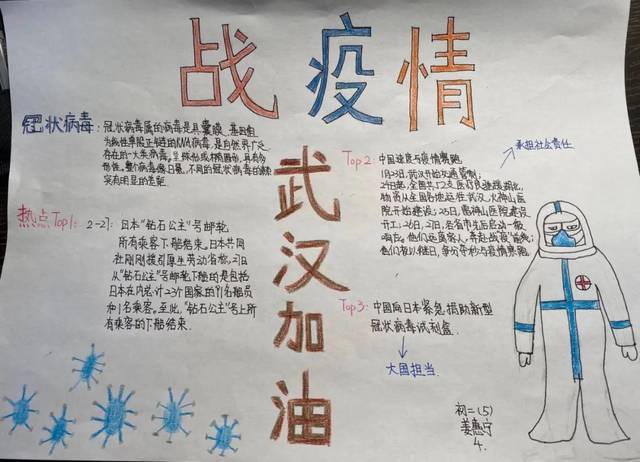 战疫情
冠状病毒：冠状病毒属的病毒是具囊膜、基因组
为线性单股正链的RNA病毒，是自然界广泛
存在的一大类病毒。呈
形性。
不同的冠状病毒的
突有明显的差距
热点Top1：2-27：日本“钻石公主”号邮轮
所有乘客下船结束。日本共同
社刚刚援引厚生劳动省称，27日
从“钻石公主”号邮轮下船的是包括
日本在内总计23个国家的91名船员
和1名乘客。至此，“钻石公主”号上所
有乘客的下船结束。
武汉加油
Top2：中国速度与疫情赛跑
1月23日，武汉开始交通管制；
24日起，全国共52支医疗队驰援湖北，
物资从全国各地运往武汉，火神山医
院开始建设；25日，雷神山医院建设
开工；26日，27日，各省市先后启动一级
响应。他们远离家人，奔赴战“疫”前线；
他们夜以继日，争分夺秒与疫情赛跑
承担社会责任
Top3：中国向日本紧急捐助新型
冠状病毒试剂盒。
大国担当
初二(5)
姜惠宁
4.